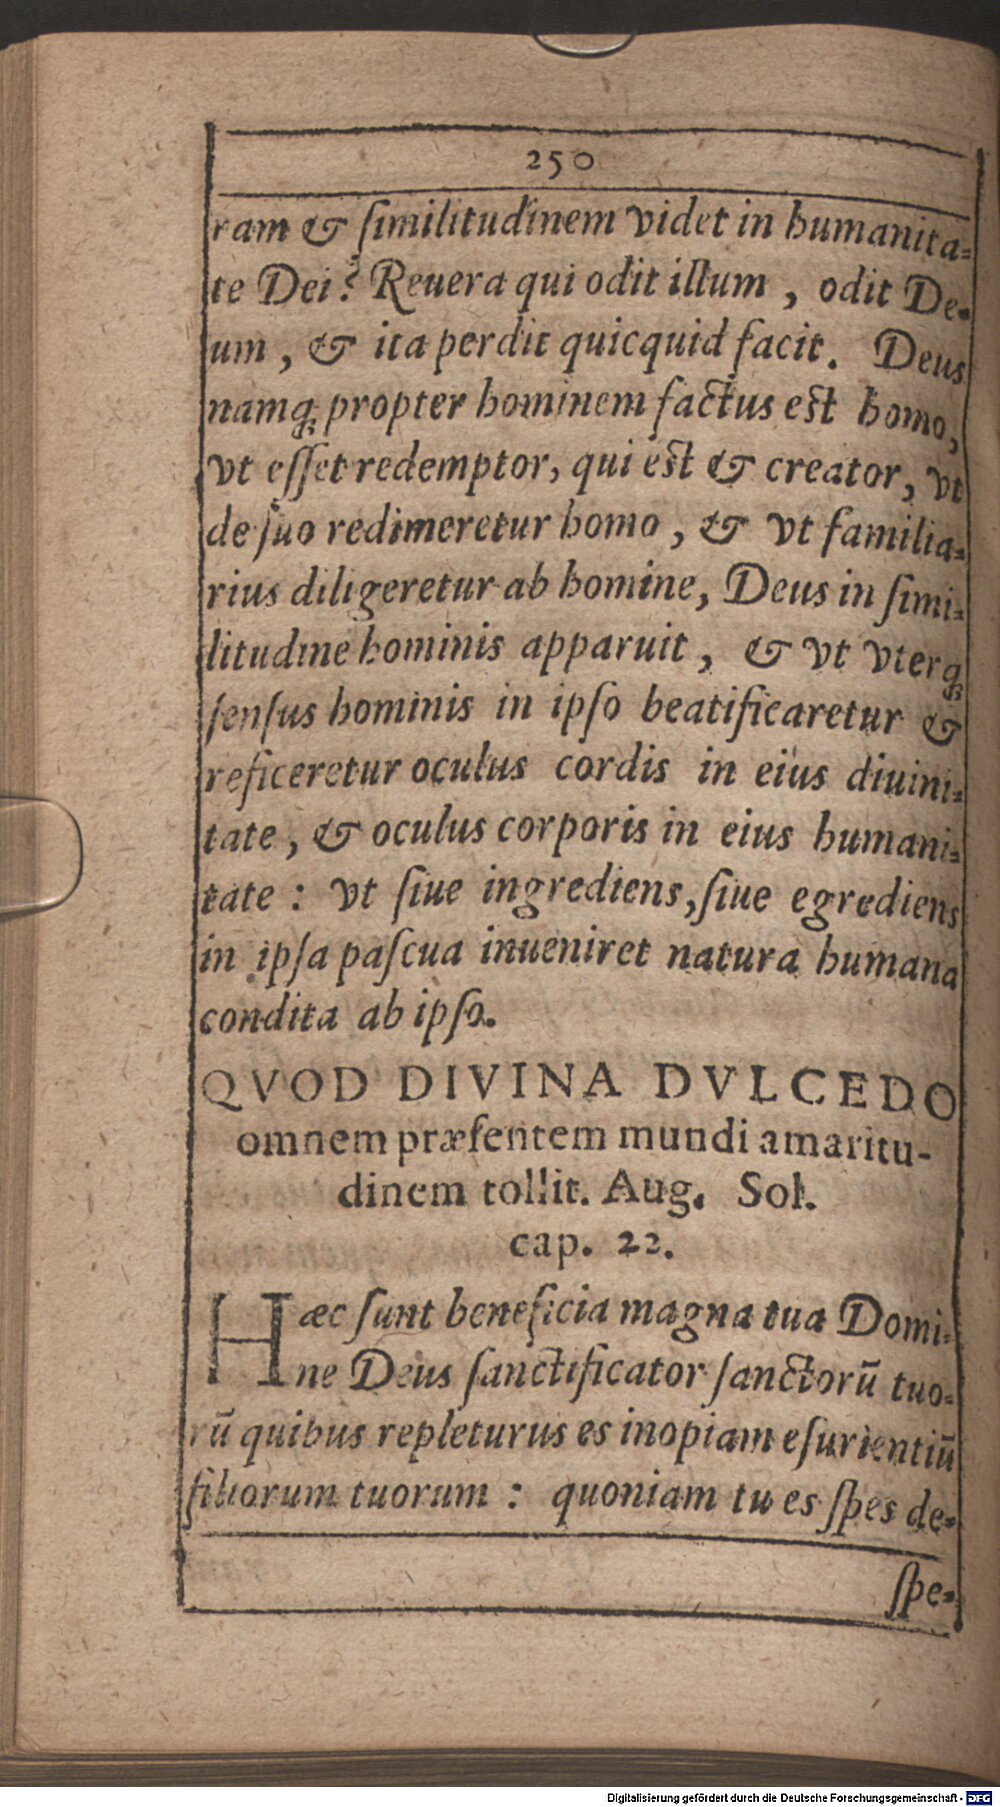 250
ram & ſimilitudinem videt in humanita-
te Dei? Reuera qui odit illum, odit De-
um, & ita perdit quicquid facit. Deus
namq; propter hominem factus est homo,
vt eſſet redemptor, qui est & creator, vt
de ſuo redimeretur homo, & vt familia-
rius diligeretur ab homine, Deus in ſimi-
litudine hominis apparuit, & vt vterq;
ſenſus hominis in ipſo beatificaretur &
reficeretur oculus cordis in eius diuini-
tate, & oculus corporis in eius humani-
tate: vt ſiue ingrediens, ſiue egrediens
in ipſa paſcua inueniret natura humana
condita ab ipſo.
QVOD DIVINA DVLCEDO
omnem præſentem mundi amaritu-
dinem tollit. Aug. Sol.
cap. 22.
Hæc ſunt beneficia magna tua Domi-
ne Deus ſanctificator ſanctorū tuo-
rū quibus repleturus es inopiam eſurientiū
filiorum tuorum: quoniam tu es ſpes de-
ſpe-
Digitalisierung gefördert durch die Deutsche Forschungsgemeinschaft - DFG